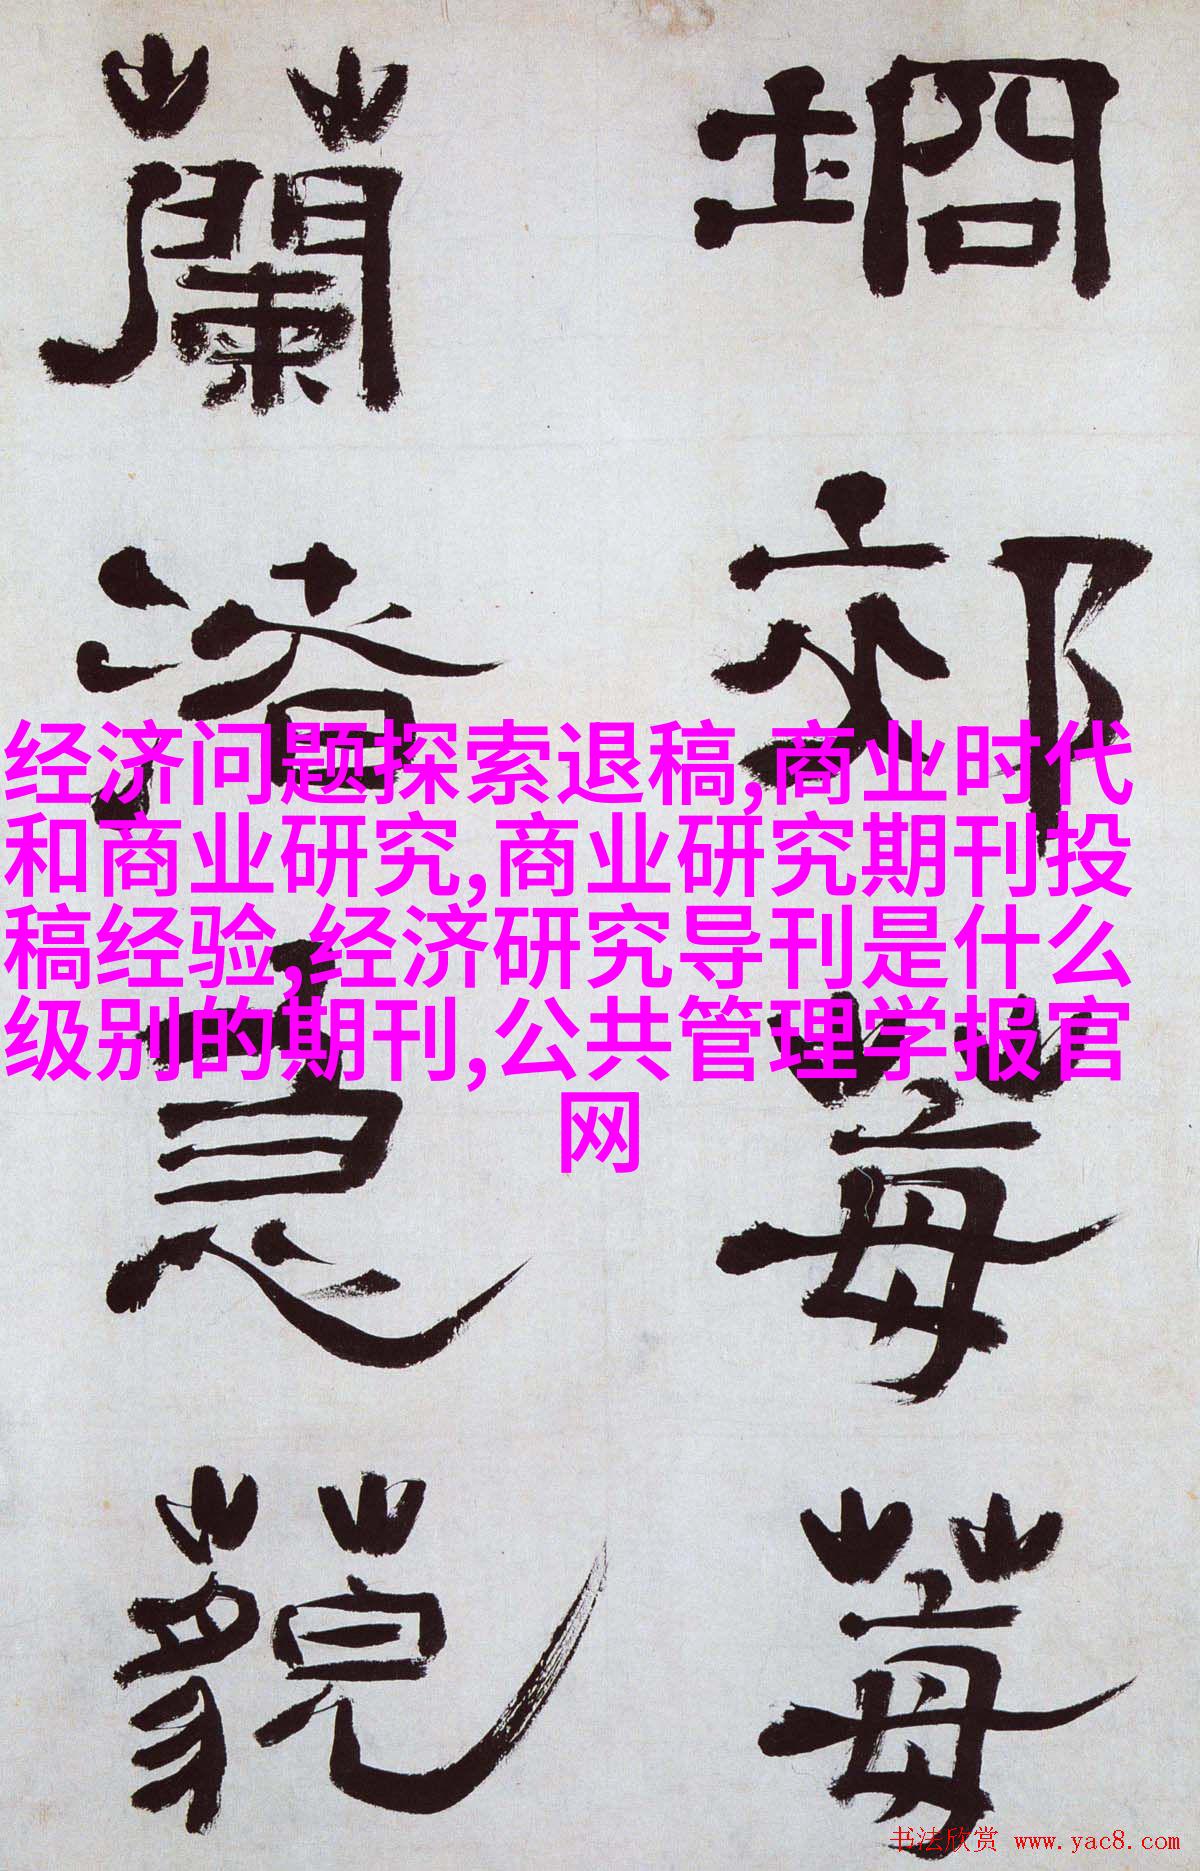 坰郊莓莓
蘭渚急藐
经济问题探索退稿,商业时代
和商业研究,商业研究期刊投
稿经验,经济研究导刊是什么
级别的期刊,公共管理学报官
网
书法欣赏 www.yac8.com